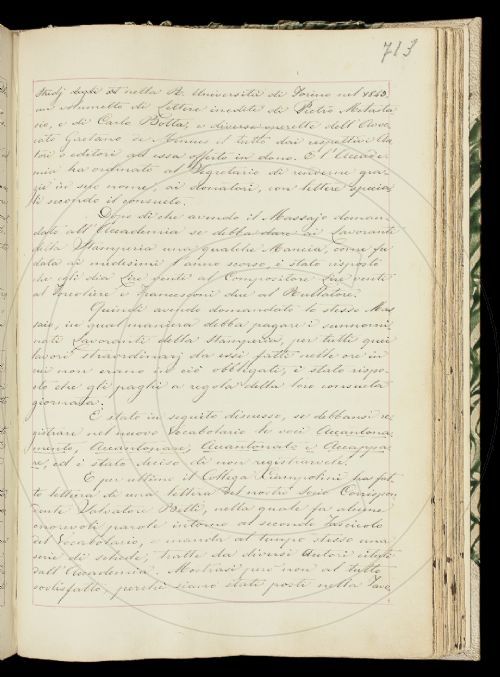 713
Studj degli st nella R. Università di Torino nel 1843.
un mannello di Lettere inedite di Pietro Metasta
sio, e di Carlo Botta, e diverse operette dell'Avvo
cato Gaetano de il tutto dai respettivi Au
tori o editori ad essa offerto in dono. E l'Accade
mia ha ordinato al Segretario di renderne gra
zie in suo nome, ai donatori, con lettere speciali
secondo il consueto.
Dopo di che avendo il Massajo doman
dato all'Accademia se debba dare ai Lavoranti
della Stamperia una qualche Mancia, come fu
data ai medesimi l'anno scorso, è stato risposto
che egli dia Lire venti al Compositore Lire venti
al Torcoliere e Francesconi due al Battitore.
Quindi avendo domandato lo stesso Mas
sajo, in qual maniera debba pagare i sunnomi
nati Lavoranti della Stamperia, per tutti quei
lavori straordinarj da essi fatti nelle ore in
cui non erano in ciò obbligati, è stato rispo
sto che gli paghi a regola della loro consueta
giornata.
È stato in seguito discusso, se debbansi re
gistrare nel nuovo Vocabolario le voci Accantona
mento, Accantonare, Accantonato e Accappa
re, ed è stato deciso di non registrarvele.
E per ultimo il Collega Ciampolini ha fat
to lettura di una lettera del nostro Socio Corrispon
dente Salvatore Betti, nella quale fa alcune
onorevoli parole intorno al secondo fascicolo
del Vocabolario, e manda al tempo stesso una
serie di schede, tratte da diversi Autori citati
dall'Accademia. Mostrasi però non al tutto
sodisfatto, perchè siano stati posti nella Tavo